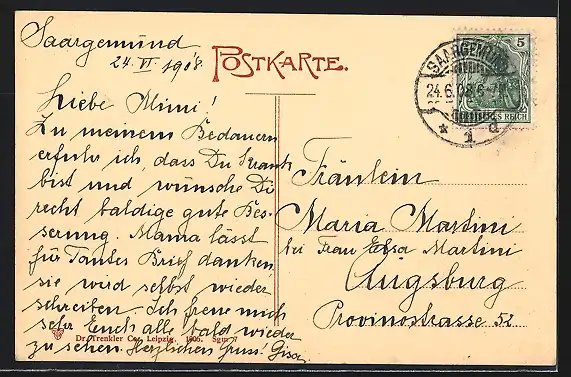 Saargemünd
24. VI. 1908
POSTKARTE.
Liebe Mimi!
Zu meinem Bedauern
erfuhr ich, dass Du krank
bist und wünsche Di
recht baldige gute Bes-
serung. Mama lässt
für Tantes Brief danken,
sie wird selbst wieder
schreiben. Ich freue mich
sehr Euch alle bald wieder
zu sehen. Herzlichen Gruss! Gisa
Dr. Trenkler Co., Leipzig, 1906. Sgm
5
SAARGEMÜND
24.6.08.6-7
* 1 d
REICH
Fräulein
Maria Martini
bei Frau Elsa Martini
Augsburg
Provinostrasse 52